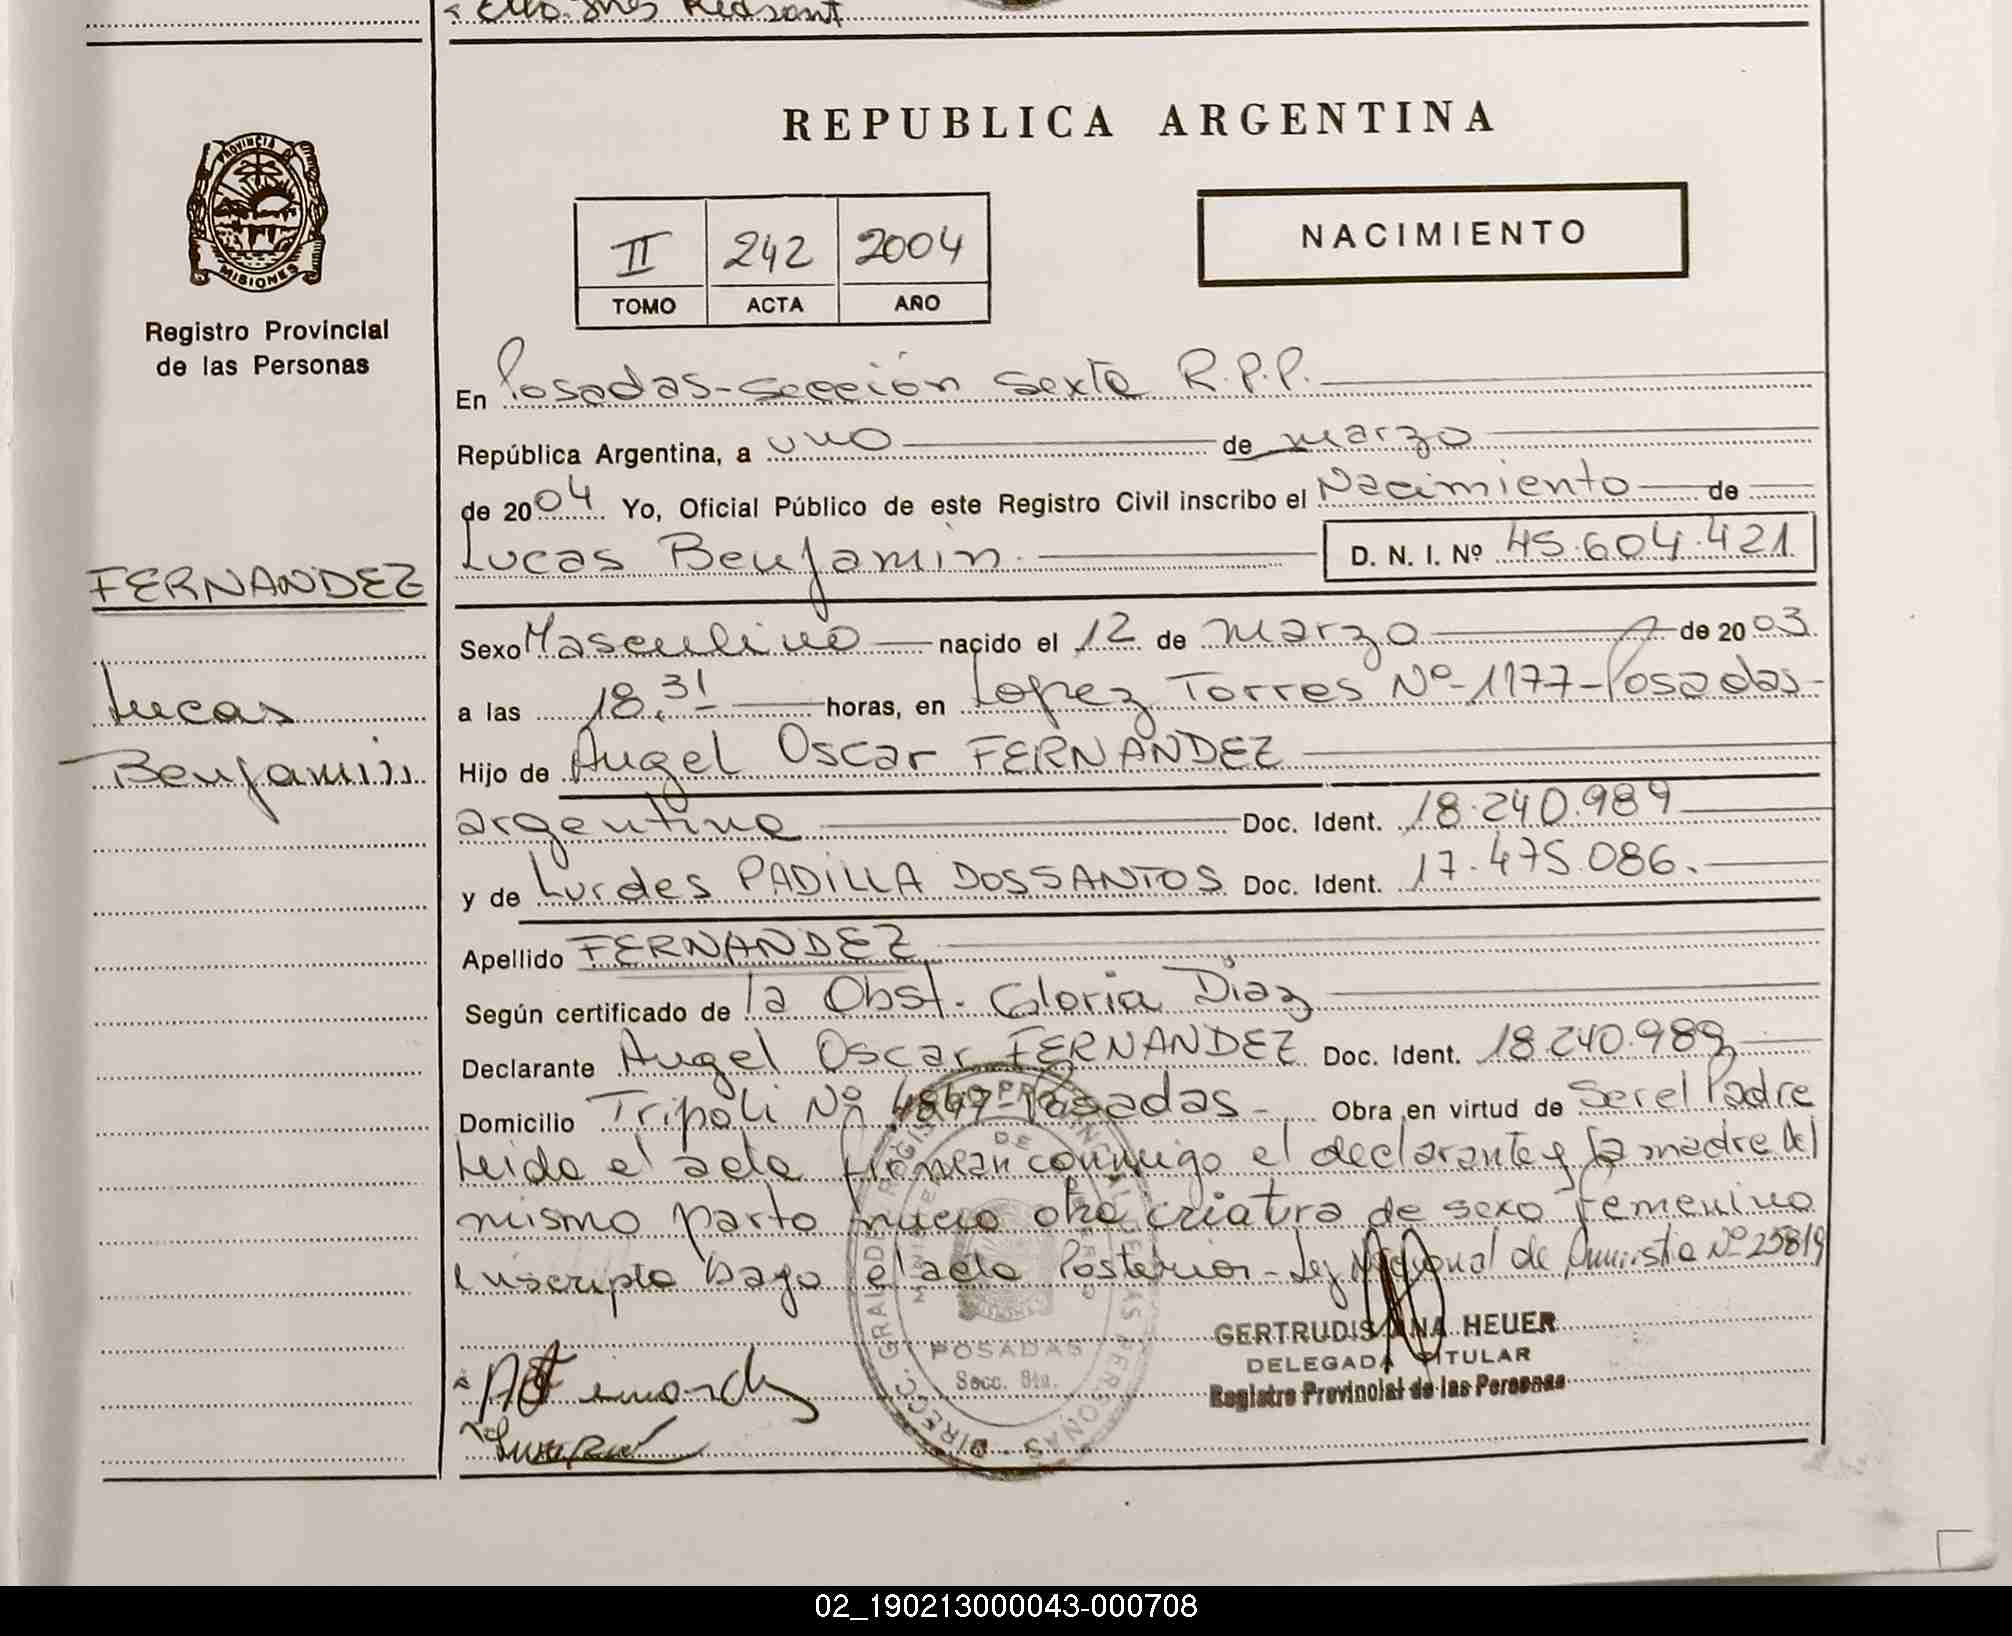 REPUBLICA ARGENTINA
PROVINCIA DE
MISIONES
Registro Provincial
de las Personas
NACIMIENTO
II 242 2004
TOMO ACTA AÑO
En Posadas-sección sexta R.P.P.
República Argentina, a uno de marzo
de 2004 Yo, Oficial Público de este Registro Civil inscribo el Nacimiento de
Lucas Benjamin. D. N. I. Nº 45.604.421
FERNANDEZ
Lucas
Benjamin
Sexo Masculino nacido el 12 de marzo de 2003.
a las 18.31 horas, en Lopez Torres Nº-1177-Posadas-
Hijo de Angel Oscar FERNANDEZ
argentino Doc. Ident. 18.240.989
y de Lurdes PADILLA DOSSANTOS Doc. Ident. 17.475.086.
Apellido FERNANDEZ
Según certificado de la Obst. Gloria Diaz
Declarante Angel Oscar FERNANDEZ Doc. Ident. 18.240.989
Domicilio Tripoli Nº Posadas- Obra en virtud de Ser el Padre
Leida el acta firman conmigo el declarante y la madre Del
mismo parto nacio otra criatura de sexo femenino
inscripta bajo el acta Posterior- Ley Nacional de Amnistia Nº 25819
GERTRUDIS ANA HEUER
DELEGADA TITULAR
Registro Provincial de las Personas
POSADAS
Secc. 6ta.
02_190213000043-000708